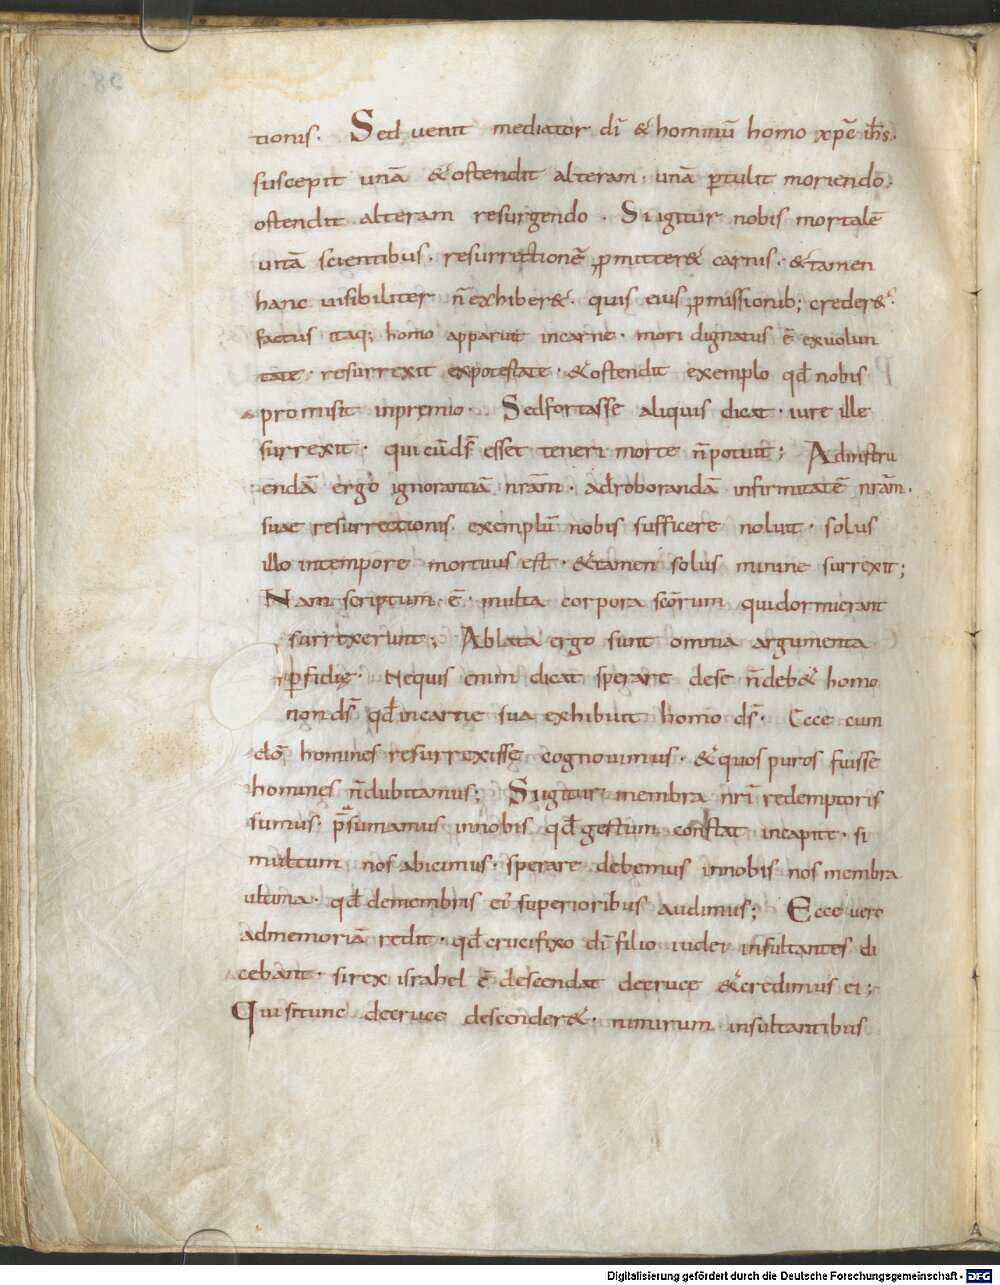 tionis. Sed uenit mediator dī & hominū homo xp̄c ih̄s.
suscepit unā & ostendit alteram. unā ptulit moriendo.
ostendit alteram resurgendo. Si igitur nobis mortalē
uitā scientibus. resurrectionē pmitter& carnis. & tamen
hanc uisibiliter n̄ exhiber&. quis eius pmissionib; creder&.
factus itaq; homo apparuit incarne. mori dignatus ē exuolun
tate. resurrexit expotestate. & ostendit exemplo qd̄ nobis
promisit inpremio. Sedfortasse aliquis dicat. iure ille
surrexit. qui cū ds̄ esset teneri morte n̄ potuit; Adinstru
endā ergo ignorantiā nrām. adroborandā infirmitatē nrām.
suae resurrectionis exemplū nobis sufficere noluit. solus
illo intempore mortuus est. & tamen solus minime surrexit;
Nam scriptum ē. multa corpora scōrum qui dormierant
surrexerunt; Ablata ergo sunt omnia argumenta
pfidię. Nequis enim dicat sperare dese n̄ deb& homo
non ds̄ qd̄ incarne sua exhibuit homo ds̄. Ecce cum
dō homines resurrexisse cognouimus. & quos puros fuisse
homines n̄ dubitamus; Si igitur membra nrī redemptoris
sumus. p̄sumamus innobis qd̄ gestum constat incapite. si
multum nos abicimus. sperare debemus innobis nos membra
ultima. qd̄ demembris ei superioribus audimus; Ecce uero
admemoriā redit. qd̄ crucifixo dī filio iudei insultantes di
cebant. si rex israhel ē descendat decruce & credimus ei;
Qui si tunc decruce descender&. nimirum insultantibus
Digitalisierung gefördert durch die Deutsche Forschungsgemeinschaft - DFG